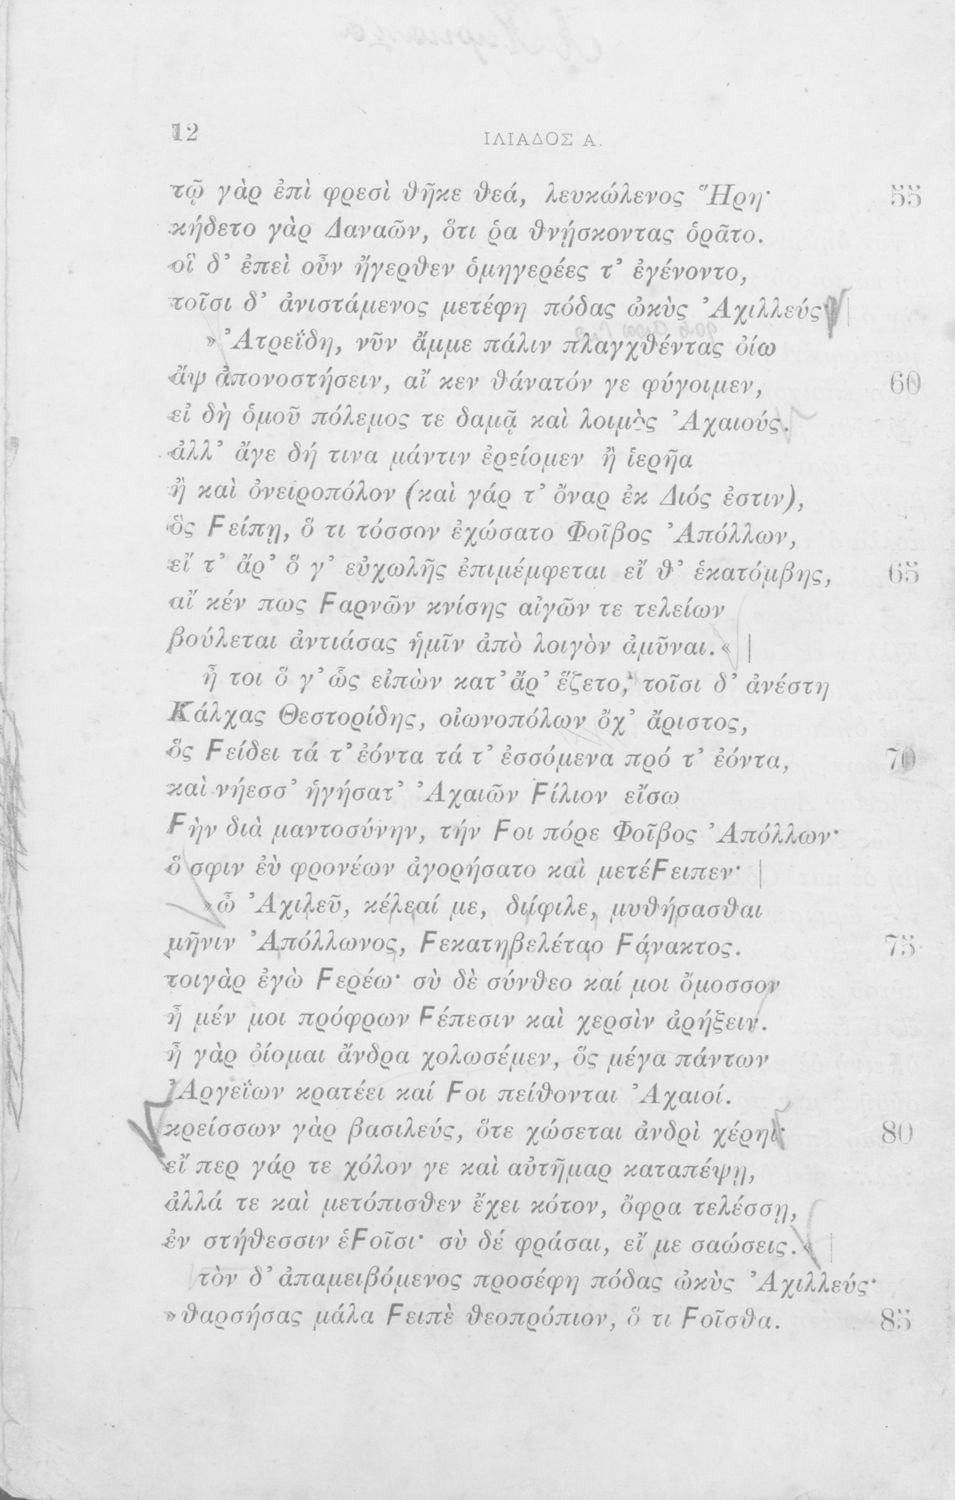 12
ΙΛΙΑΔΟΣ Α.
τῷ γὰρ ἐπὶ φρεσὶ θῆκε θεά, λευκώλενος Ἥρη· 55
κήδετο γὰρ Δαναῶν, ὅτι ῥα θνῄσκοντας ὁρᾶτο.
οἳ δ' ἐπεὶ οὖν ἤγερθεν ὁμηγερέες τ' ἐγένοντο,
τοῖσι δ' ἀνιστάμενος μετέφη πόδας ὠκὺς Ἀχιλλεύς·
»Ἀτρεΐδη, νῦν ἄμμε πάλιν πλαγχθέντας ὀίω
ἂψ ἀπονοστήσειν, αἴ κεν θάνατόν γε φύγοιμεν, 60
εἰ δὴ ὁμοῦ πόλεμος τε δαμᾷ καὶ λοιμὸς Ἀχαιούς.
ἀλλ' ἄγε δή τινα μάντιν ἐρείομεν ἢ ἱερῆα
ἢ καὶ ὀνειροπόλον (καὶ γάρ τ' ὄναρ ἐκ Διός ἐστιν),
ὅς Ϝείπῃ, ὅ τι τόσσον ἐχώσατο Φοῖβος Ἀπόλλων,
εἴ τ' ἄρ' ὅ γ' εὐχωλῆς ἐπιμέμφεται εἴ θ' ἑκατόμβης, 65
αἴ κέν πως Ϝαρνῶν κνίσης αἰγῶν τε τελείων
βούλεται ἀντιάσας ἡμῖν ἀπὸ λοιγὸν ἀμῦναι.«
ἦ τοι ὅ γ' ὣς εἰπὼν κατ' ἄρ' ἕζετο, τοῖσι δ' ἀνέστη
Κάλχας Θεστορίδης, οἰωνοπόλων ὄχ' ἄριστος,
ὃς Ϝείδει τά τ' ἐόντα τά τ' ἐσσόμενα πρό τ' ἐόντα, 70
καὶ νήεσσ' ἡγήσατ' Ἀχαιῶν Ϝίλιον εἴσω
Ϝὴν διὰ μαντοσύνην, τήν Ϝοι πόρε Φοῖβος Ἀπόλλων·
ὅ σφιν ἐὺ φρονέων ἀγορήσατο καὶ μετέϜειπεν·
»ὦ Ἀχιλεῦ, κέλεαί με, διίφιλε, μυθήσασθαι
μῆνιν Ἀπόλλωνος, Ϝεκατηβελέταο Ϝάνακτος. 75
τοιγὰρ ἐγὼ Ϝερέω· σὺ δὲ σύνθεο καί μοι ὄμοσσον
ἦ μέν μοι πρόφρων Ϝέπεσιν καὶ χερσὶν ἀρήξειν.
ἦ γὰρ ὀίομαι ἄνδρα χολωσέμεν, ὃς μέγα πάντων
Ἀργεΐων κρατέει καί Ϝοι πείθονται Ἀχαιοί.
κρείσσων γὰρ βασιλεύς, ὅτε χώσεται ἀνδρὶ χέρηι· 80
εἴ περ γάρ τε χόλον γε καὶ αὐτῆμαρ καταπέψῃ,
ἀλλά τε καὶ μετόπισθεν ἔχει κότον, ὄφρα τελέσσῃ,
ἐν στήθεσσιν ἑϜοῖσι· σὺ δέ φράσαι, εἴ με σαώσεις.«
τὸν δ' ἀπαμειβόμενος προσέφη πόδας ὠκὺς Ἀχιλλεύς·
»θαρσήσας μάλα Ϝειπὲ θεοπρόπιον, ὅ τι Ϝοῖσθα. 85